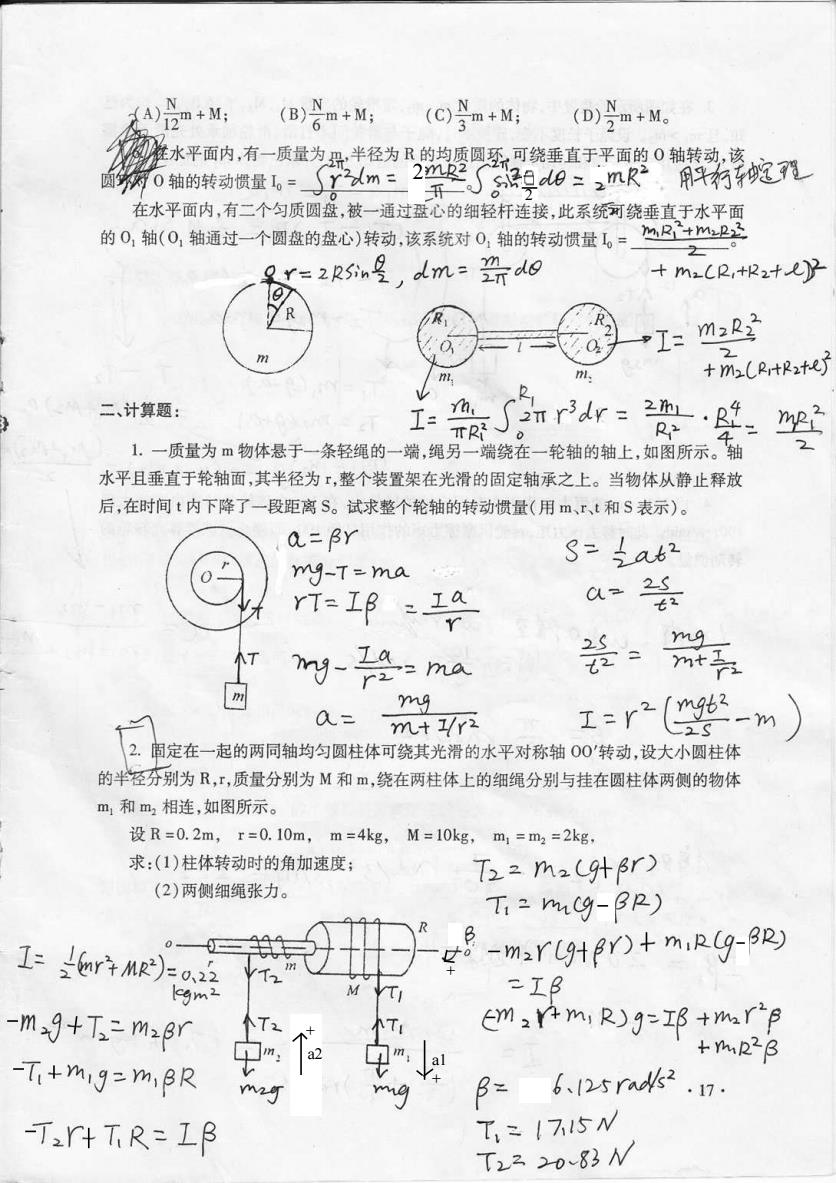 (A) N/12 m + M;  (B) N/6 m + M;  (C) N/3 m + M;  (D) N/2 m + M。
在水平面内,有一质量为 m,半径为 R 的均质圆环,可绕垂直于平面的 O 轴转动,该
圆环对 O 轴的转动惯量 I₀ = ∫₀^{2π} r²dm = 2mR²/π ∫₀^{2π} sin² θ/2 dθ = 2mR² 用平行轴定理
在水平面内,有二个匀质圆盘,被一通过盘心的细轻杆连接,此系统可绕垂直于水平面
的 O₁ 轴(O₁ 轴通过一个圆盘的盘心)转动,该系统对 O₁ 轴的转动惯量 I₀ = (m₁R₁²+m₂R₂²)/2 。
+ m₂(R₁+R₂+l)²
r = 2Rsin θ/2 , dm = m/2π dθ
θ
R
m
R₁
O₁
m₁
l
R₂
O₂
m₂
I = m₂R₂²/2
+m₂(R₁+R₂+l)²
I = m₁/πR₁² ∫₀^{R₁} 2π r³dr = 2m₁/R₁² · R₁⁴/4 = m₁R₁²/2
二、计算题:
1. 一质量为 m 物体悬于一条轻绳的一端,绳另一端绕在一轮轴的轴上,如图所示。轴
水平且垂直于轮轴面,其半径为 r,整个装置架在光滑的固定轴承之上。当物体从静止释放
后,在时间 t 内下降了一段距离 S。试求整个轮轴的转动惯量(用 m、r、t 和 S 表示)。
O r
T
T
m
a = βr
mg-T = ma
rT = Iβ = Ia/r
mg - Ia/r² = ma
a = mg/(m+I/r²)
S = ½at²
a = 2S/t²
2S/t² = mg/(m+I/r²)
I = r²(mgt²/2S - m)
2. 固定在一起的两同轴均匀圆柱体可绕其光滑的水平对称轴 OO′转动,设大小圆柱体
的半径分别为 R,r,质量分别为 M 和 m,绕在两柱体上的细绳分别与挂在圆柱体两侧的物体
m₁ 和 m₂ 相连,如图所示。
设 R = 0.2m, r = 0.10m, m = 4kg, M = 10kg, m₁ = m₂ = 2kg,
求:(1)柱体转动时的角加速度;
(2)两侧细绳张力。
T₂ = m₂(g+βr)
T₁ = m₁(g-βR)
I = ½(mr²+MR²) = 0.22 kgm²
-m₂g+T₂ = m₂βr
-T₁+m₁g = m₁βR
-T₂r+T₁R = Iβ
o
r
m
R
M
β
o′
+
T₂
T₂
m₂
m₂g
+
a2
T₁
T₁
m₁
m₁g
a1
+
-m₂r(g+βr)+m₁R(g-βR)
= Iβ
(-m₂r+m₁R)g = Iβ+m₂r²β
+m₁R²β
β = 6.125rad/s²
· 17 ·
T₁ = 17.15N
T₂ = 20.83N